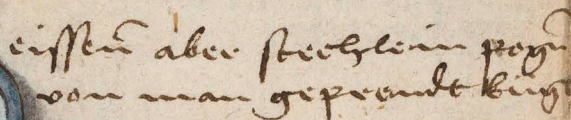 eissen̄ aber stechlein pog
von man geprandt kug